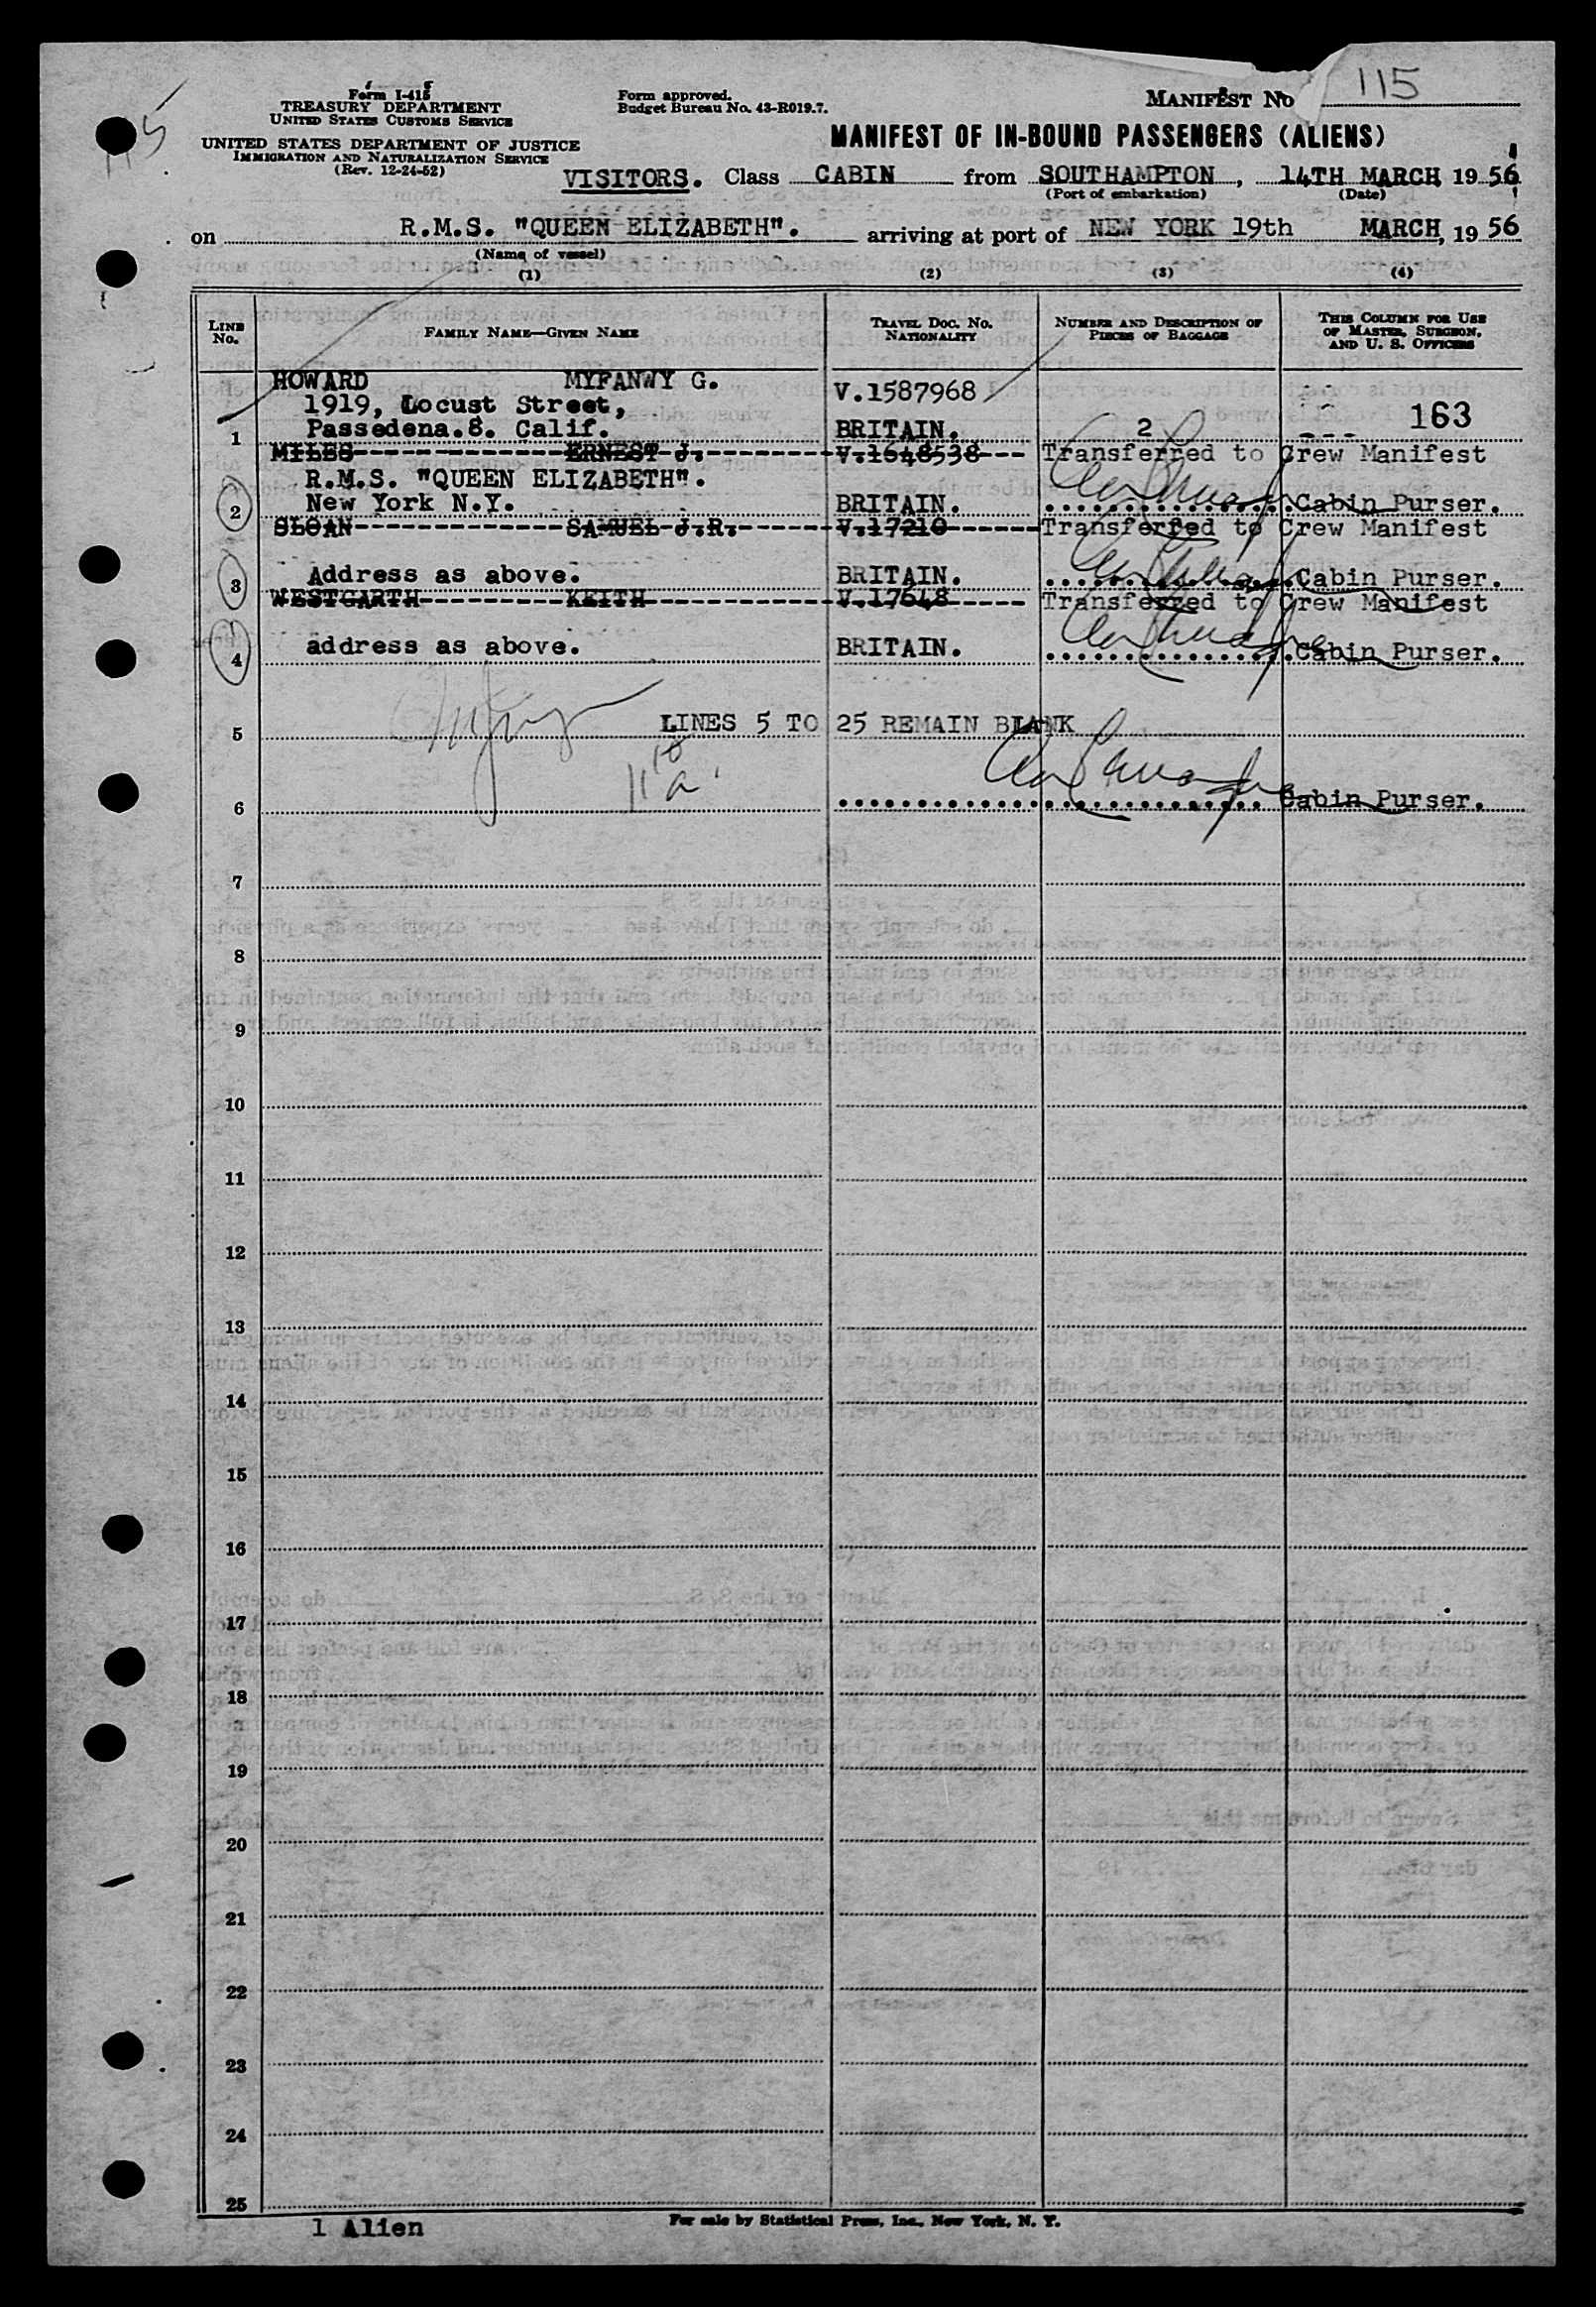 115
Form I-415
TREASURY DEPARTMENT
UNITED STATES CUSTOMS SERVICE
UNITED STATES DEPARTMENT OF JUSTICE
IMMIGRATION AND NATURALIZATION SERVICE
(Rev. 12-24-52)
Form approved.
Budget Bureau No. 43-R019.7.
MANIFEST No 115
MANIFEST OF IN-BOUND PASSENGERS (ALIENS)
VISITORS. Class CABIN from SOUTHAMPTON, 14TH MARCH 19 56
(Port of embarkation) (Date)
on R.M.S. "QUEEN ELIZABETH". arriving at port of NEW YORK 19th MARCH, 19 56
(Name of vessel)
(1) (2) (3) (4)
LINE No. FAMILY NAME—GIVEN NAME TRAVEL DOC. NO. NATIONALITY NUMBER AND DESCRIPTION OF PIECES OF BAGGAGE THIS COLUMN FOR USE OF MASTER, SURGEON, AND U. S. OFFICERS
HOWARD MYFANWY G. V.1587968
1919, Locust Street,
1 Passedena.8. Calif. BRITAIN. 2 --- 163
MILES ERNEST J. V.1648538 --- Transferred to Crew Manifest
R.M.S. "QUEEN ELIZABETH".
2 New York N.Y. BRITAIN. Cabin Purser.
SLOAN SAMUEL J.R. V.17210 Transferred to Crew Manifest
3 Address as above. BRITAIN. Cabin Purser.
WESTGARTH KEITH V.17648 Transferred to Crew Manifest
4 address as above. BRITAIN. Cabin Purser.
5 LINES 5 TO 25 REMAIN BLANK
6 Cabin Purser.
7
8
9
10
11
12
13
14
15
16
17
18
19
20
21
22
23
24
25
1 Alien
For sale by Statistical Press, Inc., New York, N. Y.